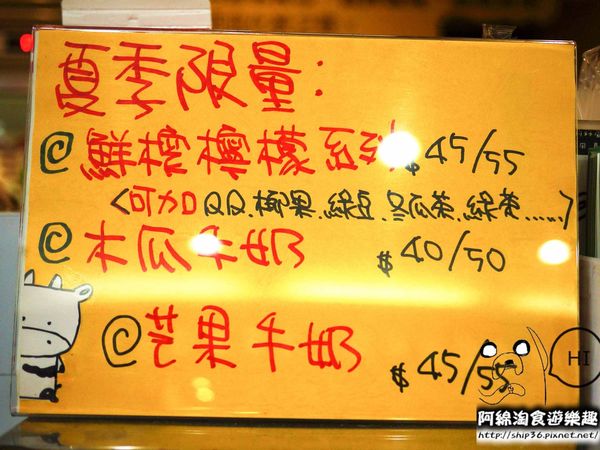 夏季限量:
@鮮榨檸檬系列 $45/55
<可加QQ.椰果.綠豆.冬瓜茶.綠茶......>
@木瓜牛奶 $40/50
@芒果牛奶 $45/55
HI
阿綿淘食遊樂趣
http://ship36.pixnet.net/